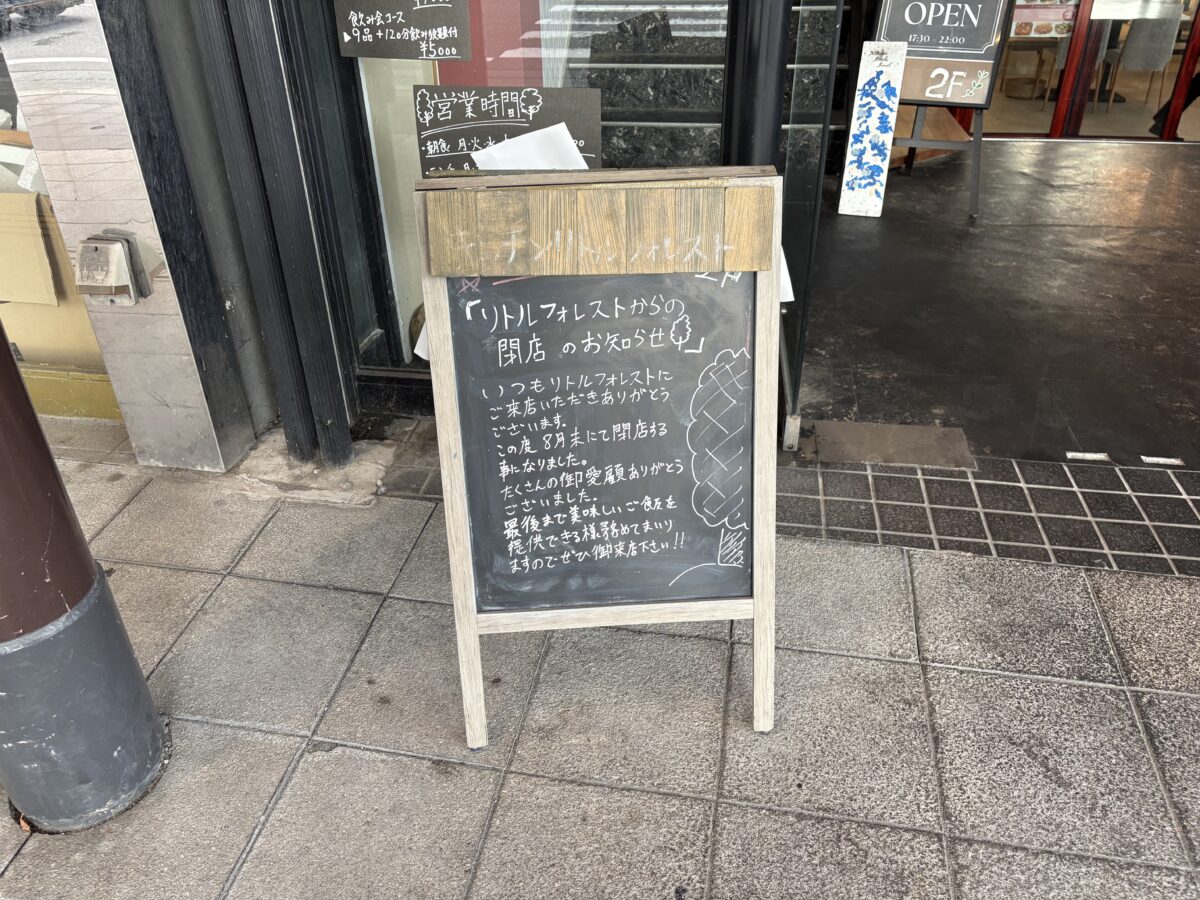 飲み会コース
▶9品+120分飲み放題付
¥5000
営業時間
・朝食 月・火・水
OPEN
17:30 - 22:00
2F
キッチンリトルフォレスト
2F
「リトルフォレストからの
閉店 のお知らせ」
いつもリトルフォレストに
ご来店いただきありがとう
ございます。
この度 8月末にて閉店する
事になりました。
たくさんの御愛顧ありがとう
ございました。
最後まで美味しいご飯を
提供できる様務めてまいり
ますのでぜひ御来店下さい!!